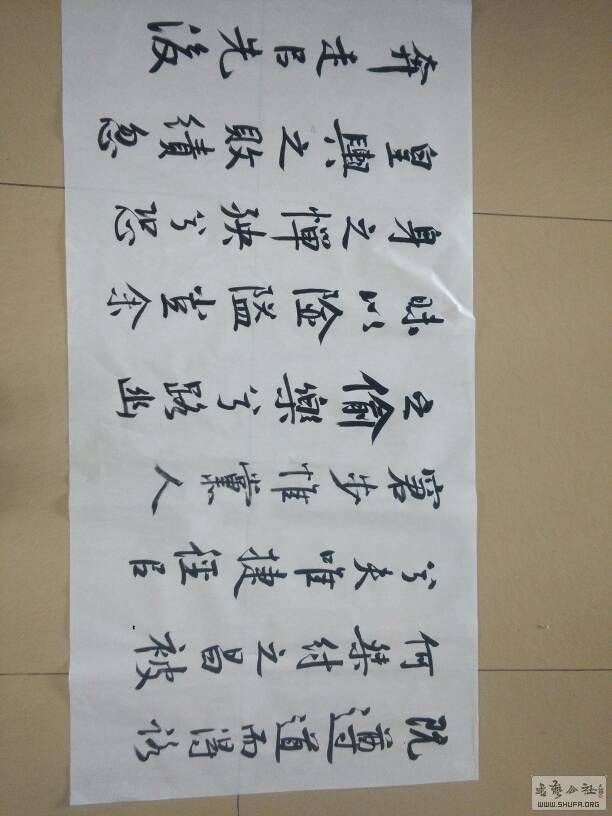 既遵道而得路
何桀紂之昌被
兮夫唯捷徑㠯
窘步惟黨人
之偷樂兮路幽
昧以險隘豈余
身之憚殃兮恐
皇輿之敗績忽
奔走㠯先後
書藝公社
WWW.SHUFA.ORG